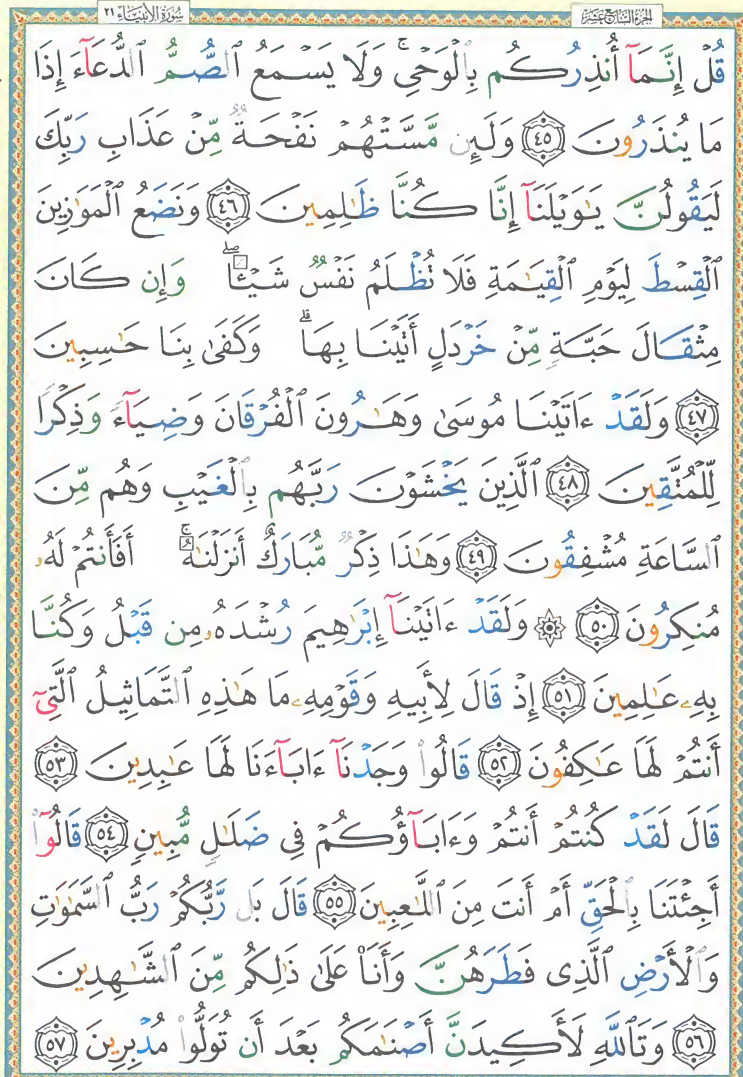 سُورَةُ الأَنبِيَاءِ ٢١
الجُزْءُ السَّابِعَ عَشَرَ
قُلْ إِنَّمَآ أُنذِرُكُم بِٱلْوَحْىِ ۚ وَلَا يَسْمَعُ ٱلصُّمُّ ٱلدُّعَآءَ إِذَا
مَا يُنذَرُونَ ٤٥ وَلَئِن مَّسَّتْهُمْ نَفْحَةٌ مِّنْ عَذَابِ رَبِّكَ
لَيَقُولُنَّ يَـٰوَيْلَنَآ إِنَّا كُنَّا ظَـٰلِمِينَ ٤٦ وَنَضَعُ ٱلْمَوَٰزِينَ
ٱلْقِسْطَ لِيَوْمِ ٱلْقِيَـٰمَةِ فَلَا تُظْلَمُ نَفْسٌ شَيْـًٔا ۖ وَإِن كَانَ
مِثْقَالَ حَبَّةٍ مِّنْ خَرْدَلٍ أَتَيْنَا بِهَا ۗ وَكَفَىٰ بِنَا حَـٰسِبِينَ
٤٧ وَلَقَدْ ءَاتَيْنَا مُوسَىٰ وَهَـٰرُونَ ٱلْفُرْقَانَ وَضِيَآءً وَذِكْرًا
لِّلْمُتَّقِينَ ٤٨ ٱلَّذِينَ يَخْشَوْنَ رَبَّهُم بِٱلْغَيْبِ وَهُم مِّنَ
ٱلسَّاعَةِ مُشْفِقُونَ ٤٩ وَهَـٰذَا ذِكْرٌ مُّبَارَكٌ أَنزَلْنَـٰهُ ۚ أَفَأَنتُمْ لَهُۥ
مُنكِرُونَ ٥٠ ۞ وَلَقَدْ ءَاتَيْنَآ إِبْرَٰهِيمَ رُشْدَهُۥ مِن قَبْلُ وَكُنَّا
بِهِۦ عَـٰلِمِينَ ٥١ إِذْ قَالَ لِأَبِيهِ وَقَوْمِهِۦ مَا هَـٰذِهِ ٱلتَّمَاثِيلُ ٱلَّتِىٓ
أَنتُمْ لَهَا عَـٰكِفُونَ ٥٢ قَالُوا۟ وَجَدْنَآ ءَابَآءَنَا لَهَا عَـٰبِدِينَ ٥٣
قَالَ لَقَدْ كُنتُمْ أَنتُمْ وَءَابَآؤُكُمْ فِى ضَلَـٰلٍ مُّبِينٍ ٥٤ قَالُوٓا۟
أَجِئْتَنَا بِٱلْحَقِّ أَمْ أَنتَ مِنَ ٱللَّـٰعِبِينَ ٥٥ قَالَ بَل رَّبُّكُمْ رَبُّ ٱلسَّمَـٰوَٰتِ
وَٱلْأَرْضِ ٱلَّذِى فَطَرَهُنَّ وَأَنَا۠ عَلَىٰ ذَٰلِكُم مِّنَ ٱلشَّـٰهِدِينَ
٥٦ وَتَٱللَّهِ لَأَكِيدَنَّ أَصْنَـٰمَكُم بَعْدَ أَن تُوَلُّوا۟ مُدْبِرِينَ ٥٧